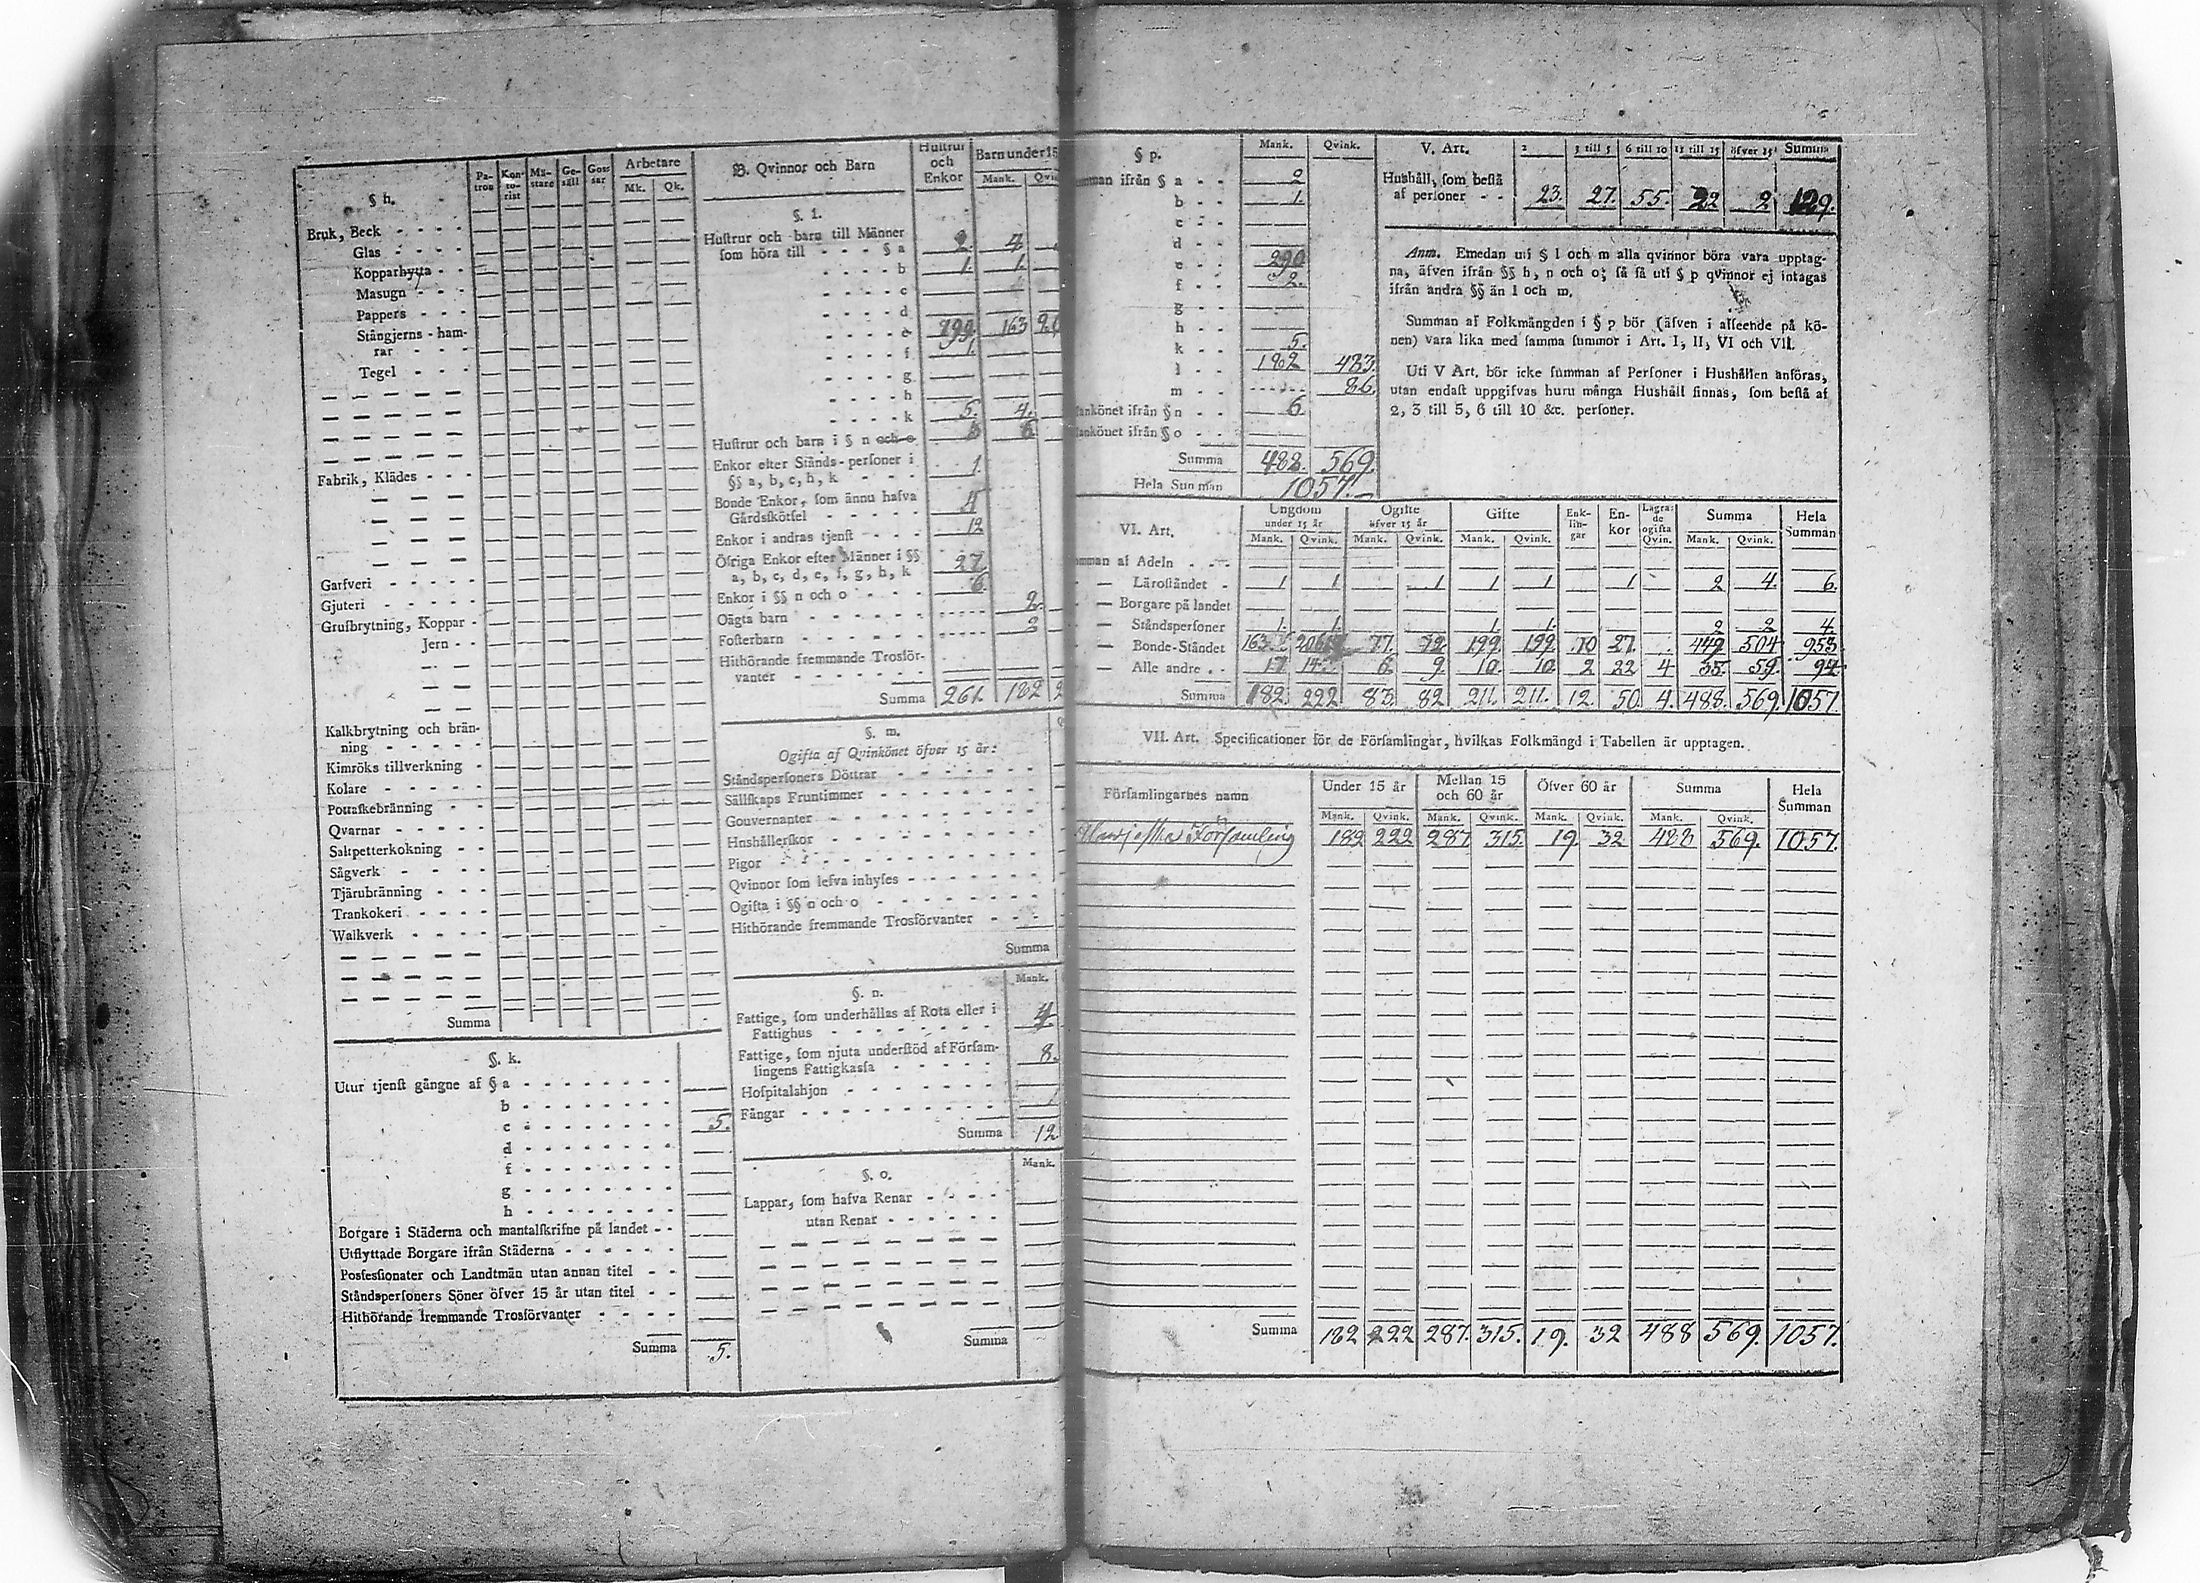 § h.
Pa-tron Kon-to-rist Mä-stare Ge-säll Gos-sar Arbetare
Mk. Qk.
Bruk, Beck
Glas
Kopparhytta
Masugn
Pappers
Stångjerns-ham-
rar
Tegel
Fabrik, Klädes
Garfveri
Gjuteri
Grufbrytning, Koppar
Jern
Kalkbrytning och brän-
ning
Kimröks tillverkning
Kolare
Pottaskebränning
Qvarnar
Saltpetterkokning
Sågverk
Tjärubränning
Trankokeri
Walkverk
Summa
§. k.
Utur tjenst gångne af § a
b
c 5.
d
f
g
h
Borgare i Städerna och mantalskrifne på landet
Utflyttade Borgare ifrån Städerna
Possessionater och Landtmän utan annan titel
Ståndspersoners Söner öfver 15 år utan titel
Hithörande fremmande Trosförvanter
Summa 5.
B. Qvinnor och Barn Hustrur och Enkor Barn under 15
Mank.
§. l.
Hustrur och barn till Männer
som höra till § a 2. 4
b 1. 1.
c
d
e 199. 163
f 1.
g
h
k 5. 4.
Hustrur och barn i § n och o
Enkor efter Stånds-personer i
§§ a, b, c, h, k 1.
Bonde Enkor, som ännu hafva
Gårdsskötsel
Enkor i andras tjenst 12
Öfriga Enkor efter Männer i §§
a, b, c, d, e, f, g, h, k 27.
Enkor i §§ n och o 6.
Oägta barn 2.
Fosterbarn
Hithörande fremmande Trosför-
vanter
Summa 261. 182
§. m.
Ogifta af Qvinkönet öfver 15 år:
Ståndspersoners Döttrar
Sällskaps Fruntimmer
Gouvernanter
Hushållerskor
Pigor
Qvinnor som lefva inhyses
Ogifta i §§ n och o
Hithörande fremmande Trosförvanter
Summa
Mank.
§. n.
Fattige, som underhållas af Rota eller i
Fattighus 4
Fattige, som njuta understöd af Försam-
lingens Fattigkassa 8.
Hospitalshjon
Fångar
Summa 12
Mank.
§. o.
Lappar, som hafva Renar
utan Renar
Summa
§ p. Mank. Qvink.
ifrån § a 2
b 1.
c
d
e 290
f 2.
g
h
k 5.
l 182 483.
m 86.
ifrån § n 6
ifrån § o
Summa 488. 569.
Hela Summan 1057.
V. Art. 2 3 till 5 6 till 10 11 till 15 öfver 15 Summa
Hushåll, som bestå
af personer 23. 27. 55. 22 2 129.
Anm. Emedan uti § l och m alla qvinnor böra vara upptag-
na, äfven ifrån §§ h, n och o; så få uti § p qvinnor ej intagas
ifrån andra §§ än l och m.
Summan af Folkmängden i § p bör (äfven i afseende på kö-
nen) vara lika med samma summor i Art. I, II, VI och VII.
Uti V Art. bör icke summan af Personer i Hushållen anföras,
utan endast uppgifvas huru många Hushåll finnas, som bestå af
2, 3 till 5, 6 till 10 &c. personer.
VI. Art. Ungdom under 15 år Ogifte öfver 15 år Gifte Enk-lin-gar En-kor Lägra-de ogifta Qvin. Summa Hela Summan
Mank. Qvink. Mank. Qvink. Mank. Qvink. Mank. Qvink.
af Adeln
Läroståndet 1 1 1 1 1 1 2 4. 6.
Borgare på landet
Ståndspersoner 1. 1. 1 1. 2 2 4.
Bonde-Ståndet 163. 206 77. 72 199. 199. 10 27. 449 504 953
Alle andre 17 14 6 9 10. 10. 2 22 4 35 59. 94
Summa 182. 222. 83. 82 211. 211. 12. 50. 4. 488. 569. 1057.
VII. Art. Specificationer för de Församlingar, hvilkas Folkmängd i Tabellen är upptagen.
Församlingarnes namn Under 15 år Mellan 15 och 60 år Öfver 60 år Summa Hela Summan
Mank. Qvink. Mank. Qvink. Mank. Qvink. Mank. Qvink.
Församling 182 222 287 315. 19. 32 488 569. 1057.
Summa 182 222 287. 315. 19. 32 488 569. 1057.